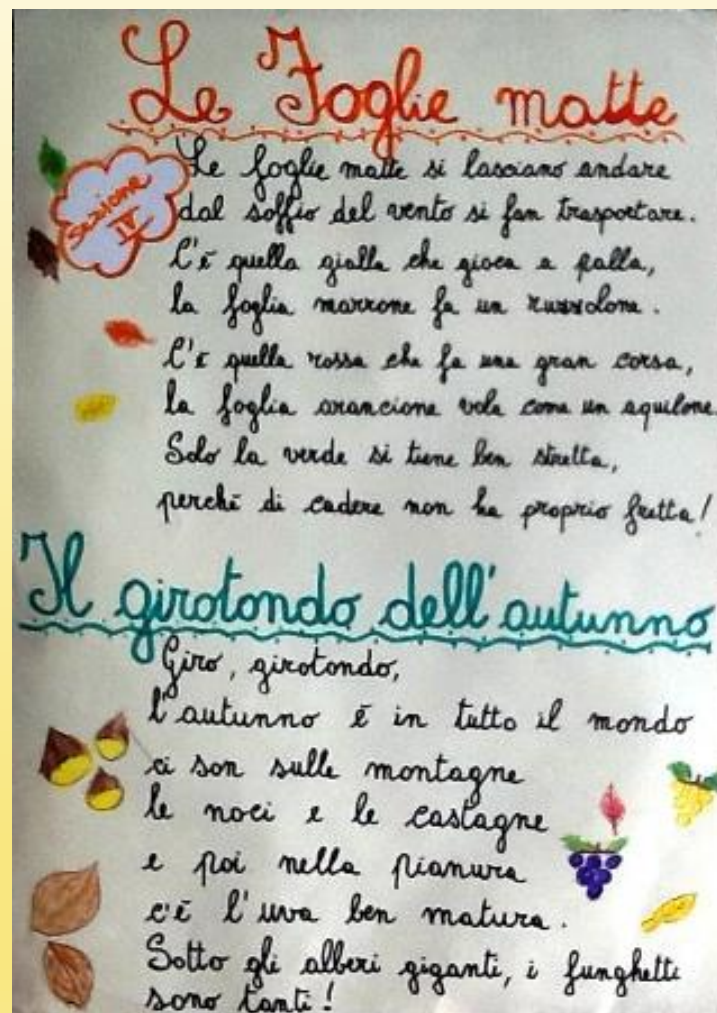 Le Foglie matte
Sezione IV
Le foglie matte si lasciano andare
dal soffio del vento si fan trasportare.
C'è quella gialla che gioca a palla,
la foglia marrone fa un ruzzolone.
C'è quella rossa che fa una gran corsa,
la foglia arancione vola come un aquilone.
Solo la verde si tiene ben stretta,
perché di cadere non ha proprio fretta!
Il girotondo dell'autunno
Giro, girotondo,
l'autunno è in tutto il mondo
ci son sulle montagne
le noci e le castagne
e poi nella pianura
c'è l'uva ben matura.
Sotto gli alberi giganti, i funghetti
sono tanti!